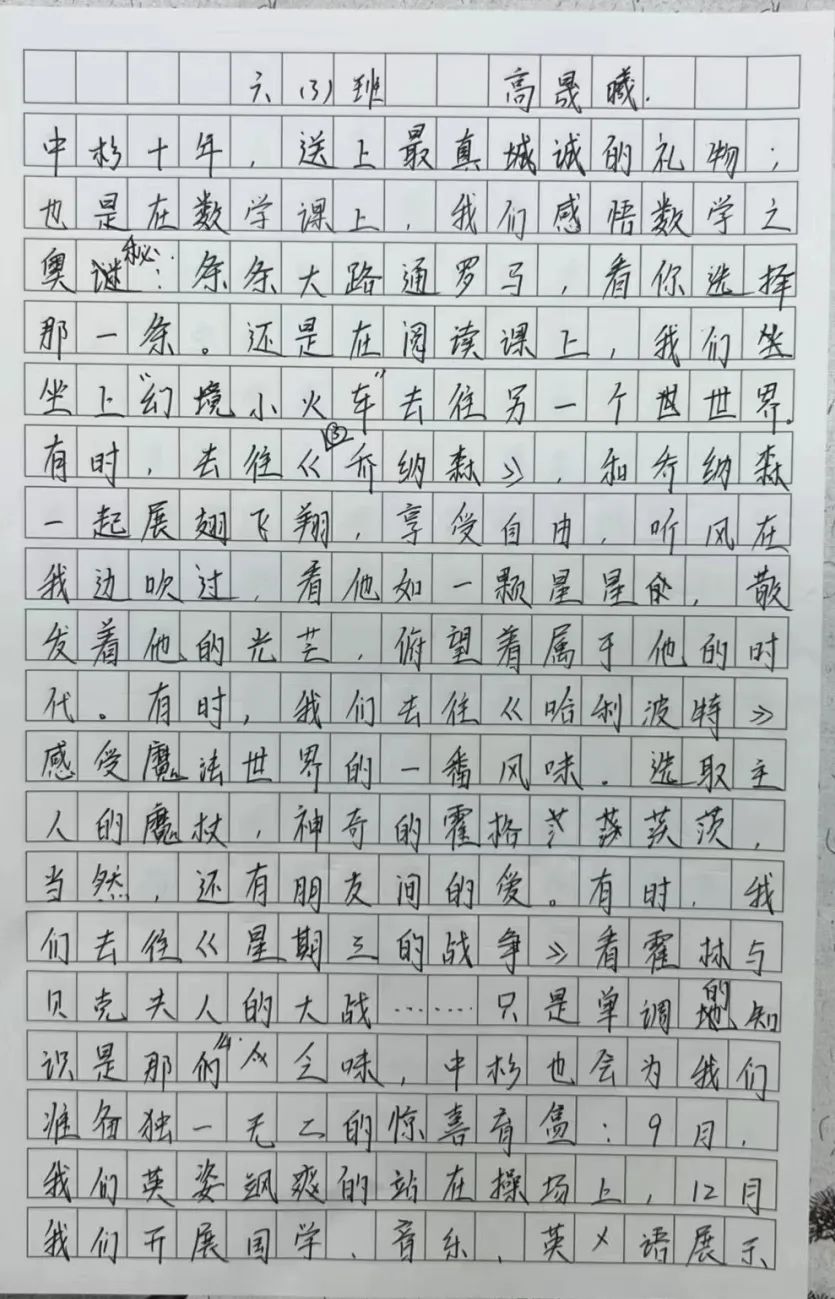 六(3)班 高晟曦.
中杉十年，送上最真城诚的礼物；
也是在数学课上，我们感悟数学之
奥谜秘：条条大路通罗马，看你选择
那一条。还是在阅读课上，我们坐
坐上“幻境小火车”去往另一个世世界。
有时，去往《③乔纳森》，和乔纳森
一起展翅飞翔，享受自由，听风在
我边吹过，看他如一颗星星般，散
发着他的光芒，俯望着属于他的时
代。有时，我们去往《哈利波特》
感受魔法世界的一番风味。选取主
人的魔杖，神奇的霍格茨，
当然，还有朋友间的爱。有时，我
们去往《星期三的战争》看霍林与
贝克夫人的大战……只是单调的知
识是那么乏味，中杉也会为我们
准备独一无二的惊喜盲盒：9月，
我们英姿飒爽的站在操场上，12月
我们开展国学、音乐、英语展示